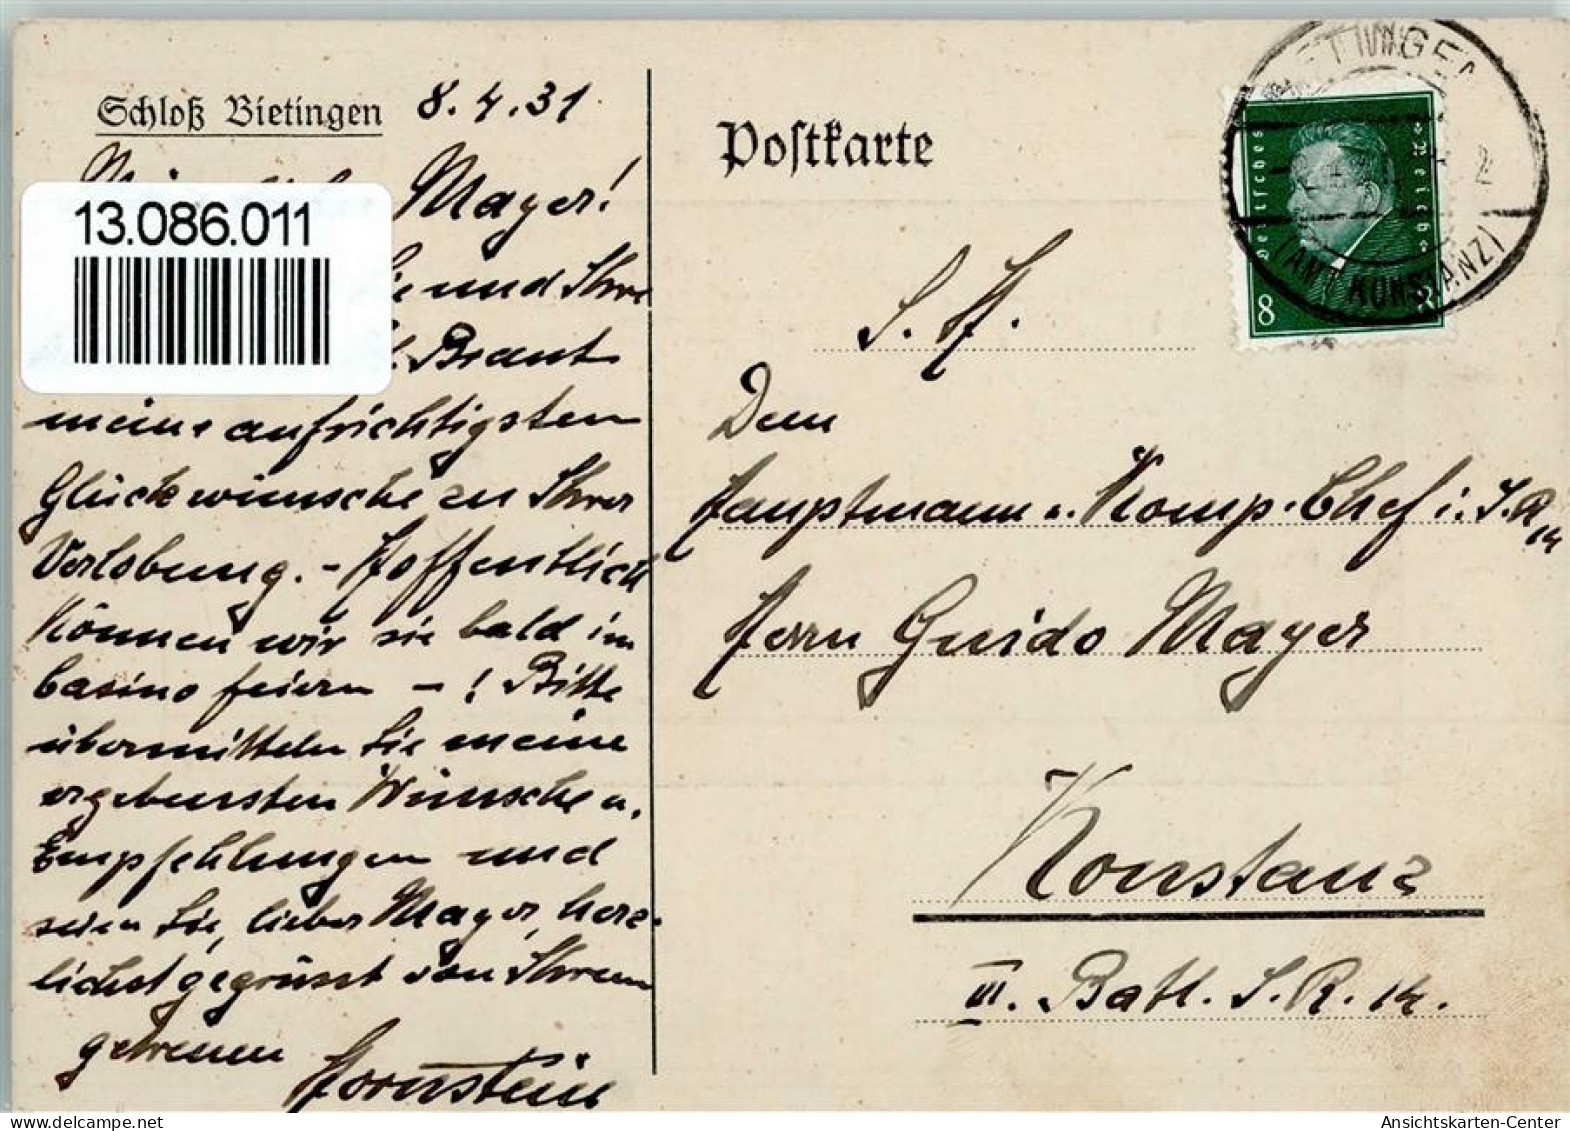 Schloß Bietingen 8.4.31
Mayer!
13.086.011
und Ihre
Braut
meine aufrichtigsten
Glückwünsche zu Ihrer
Verlobung. - Hoffentlich
können wir sie bald im
Casino feiern - ! Bitte
übermitteln Sie meine
ergebensten Wünsche u.
Empfehlungen und
seien Sie, lieber Mayer, herz-
lichst gegrüsst von Ihrem
getreuen
Hornstein
Postkarte
S. H.
Dem
Hauptmann u. Komp. Chef i. I.R. 14
Herrn Guido Mayer
Konstanz
III. Batl. I. R. 14.
Deutsches Reich
8
(AMT KONSTANZ)
AnsichtsKarten-Center